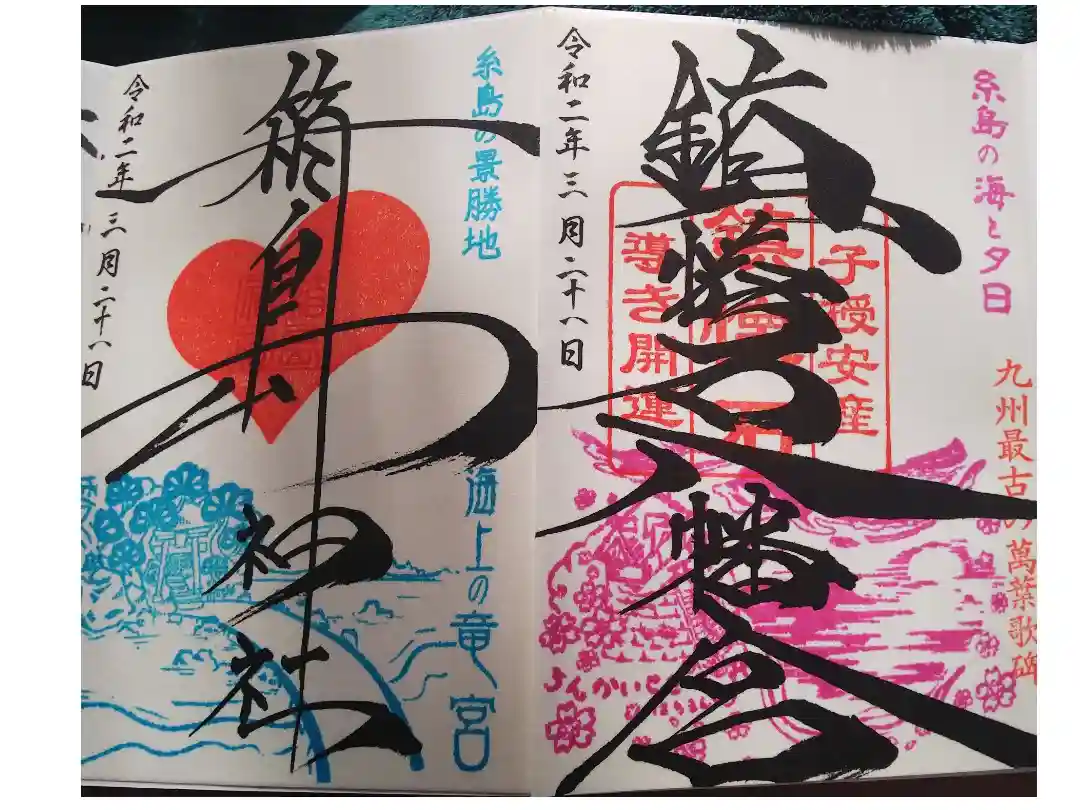 糸島の海と夕日
九州最古の萬葉歌碑
子授安産
鎮懐石
導き開運
鎮懐石八幡宮
令和二年三月二十八日
糸島の景勝地
海上の竜宮
箱島神社
令和二年三月二十八日